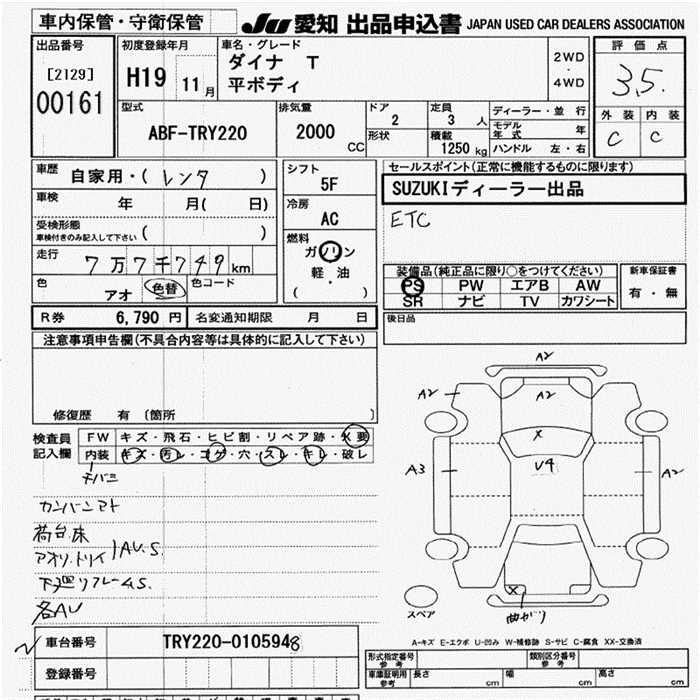 車内保管・守衛保管
JU 愛知 出品申込書 JAPAN USED CAR DEALERS ASSOCIATION
出品番号
[2129]
00161
初度登録年月
H19 11月
車名・グレード
ダイナ T
平ボディ
2WD
・
4WD
評価点
3.5
外装 内装
C C
型式
ABF-TRY220
排気量
2000
CC
ドア
2
形状
定員
3 人
積載
1250 kg
ディーラー・並行
モデル年式 年
ハンドル 左・右
車歴
自家用・( レンタ )
車検
年 月( 日)
受検形態
車検付きのみ記入して下さい ( )
走行
7万7千749km
色
アオ 色替
色コード
シフト
5F
冷房
AC
燃料
ガソリン
・
軽・油
( )
セールスポイント(正常に機能するものに限ります)
SUZUKIディーラー出品
ETC
装備品(純正品に限り○をつけてください)
PS PW エアB AW
SR ナビ TV カワシート
新車保証書
有・無
R券 6,790 円 名変通知期限 月 日
後日品
注意事項申告欄(不具合内容等は具体的に記入して下さい)
修復歴 有 〔箇所 〕
検査員
記入欄
FW キズ・飛石・ヒビ割・リペア跡・X要
内装 キズ・汚レ・コゲ・穴・スレ・キレ・破レ
カンバンアト
荷台.床
アオリ.トリイ AU.S.
下廻リフレームS.
各AU
A2
A2
A2
X
U4
A3
A2
X
曲がり
スペア
A-キズ E-エクボ U-凹み W-補修跡 S-サビ C-腐食 XX-交換済
車台番号 TRY220-0105948
登録番号
形式指定番号
参考
類別区分番号
参考
車庫証明用
参考
長さ cm 幅 cm 高さ cm